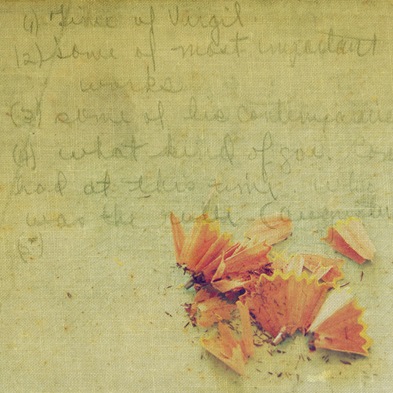 (1) Time of Virgil.
(2) some of most important
works
(3) some of his contemporarie
(4) what kind of gov. Con
had at this time. Who
was the
(5)